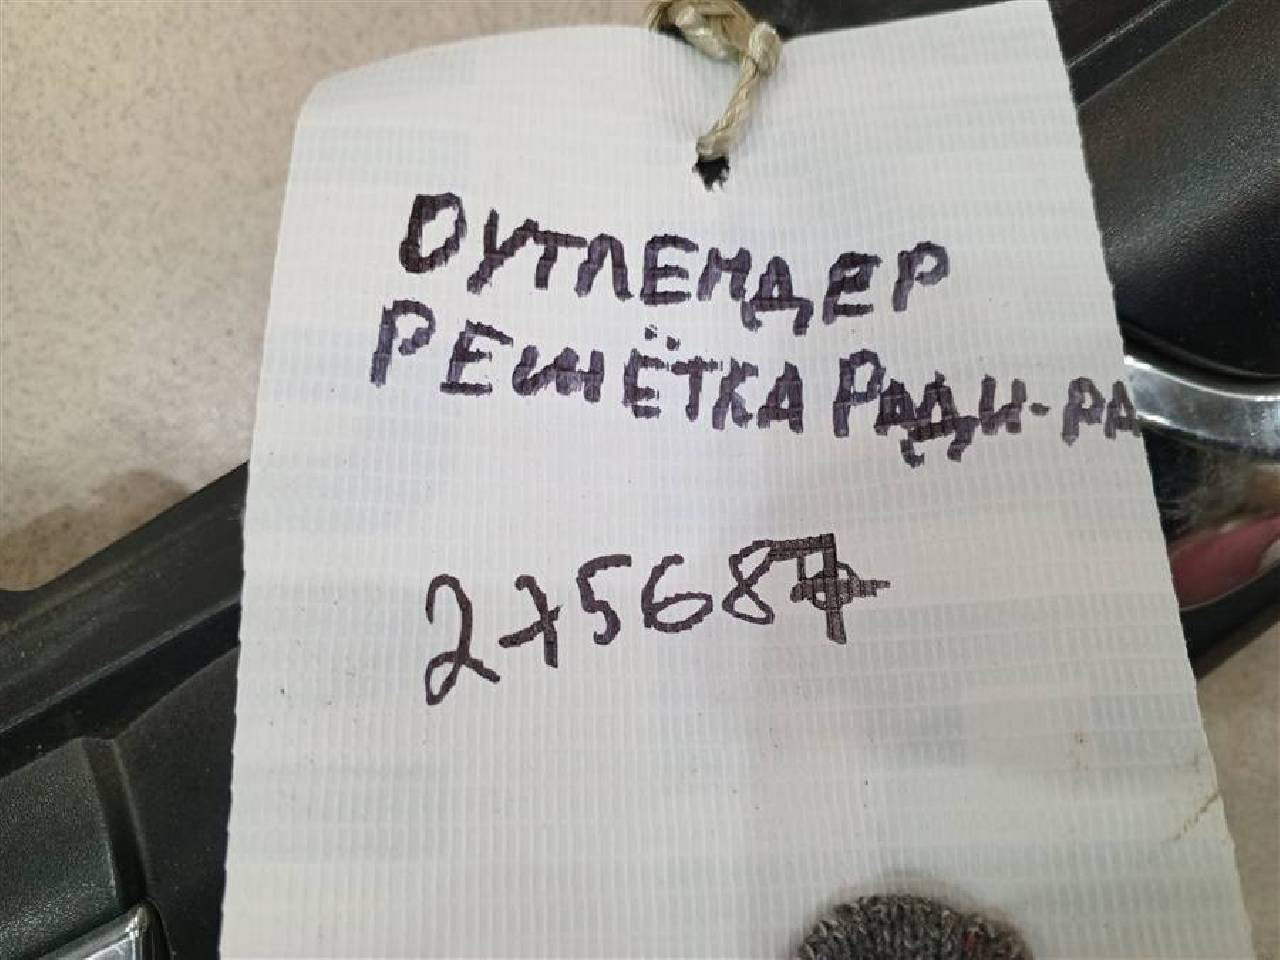 ОУТЛЕНДЕР
РЕШЁТКА РАДИ-РА
275687